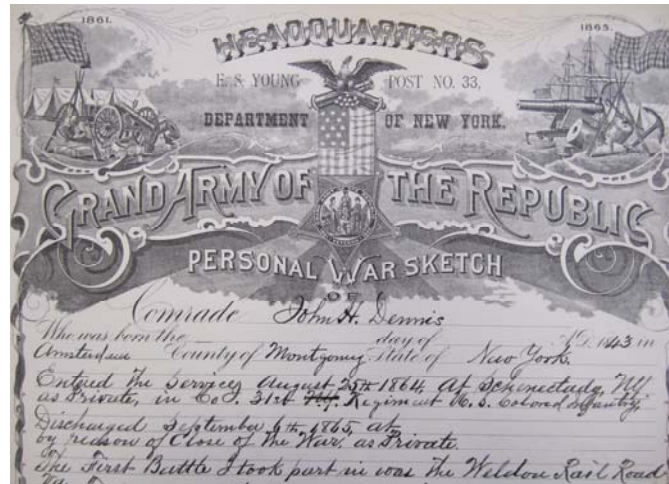 1861. 1865.
HEADQUARTERS
E. S. YOUNG POST NO. 33,
DEPARTMENT OF NEW YORK.
GRAND ARMY OF THE REPUBLIC
PERSONAL WAR SKETCH
OF
Comrade John H. Dennis
Who was born the day of A.D. 1843 in
Amsterdam County of Montgomery State of New York.
Entered The Service August 25th 1864 At Schenectady, NY
as Private, in Co. 31st Regiment U. S. Colored Infantry,
Discharged September 6th 1865 at
by reason of Close of The War, as Private.
The First Battle I took part in was The Weldon Rail Road
Va